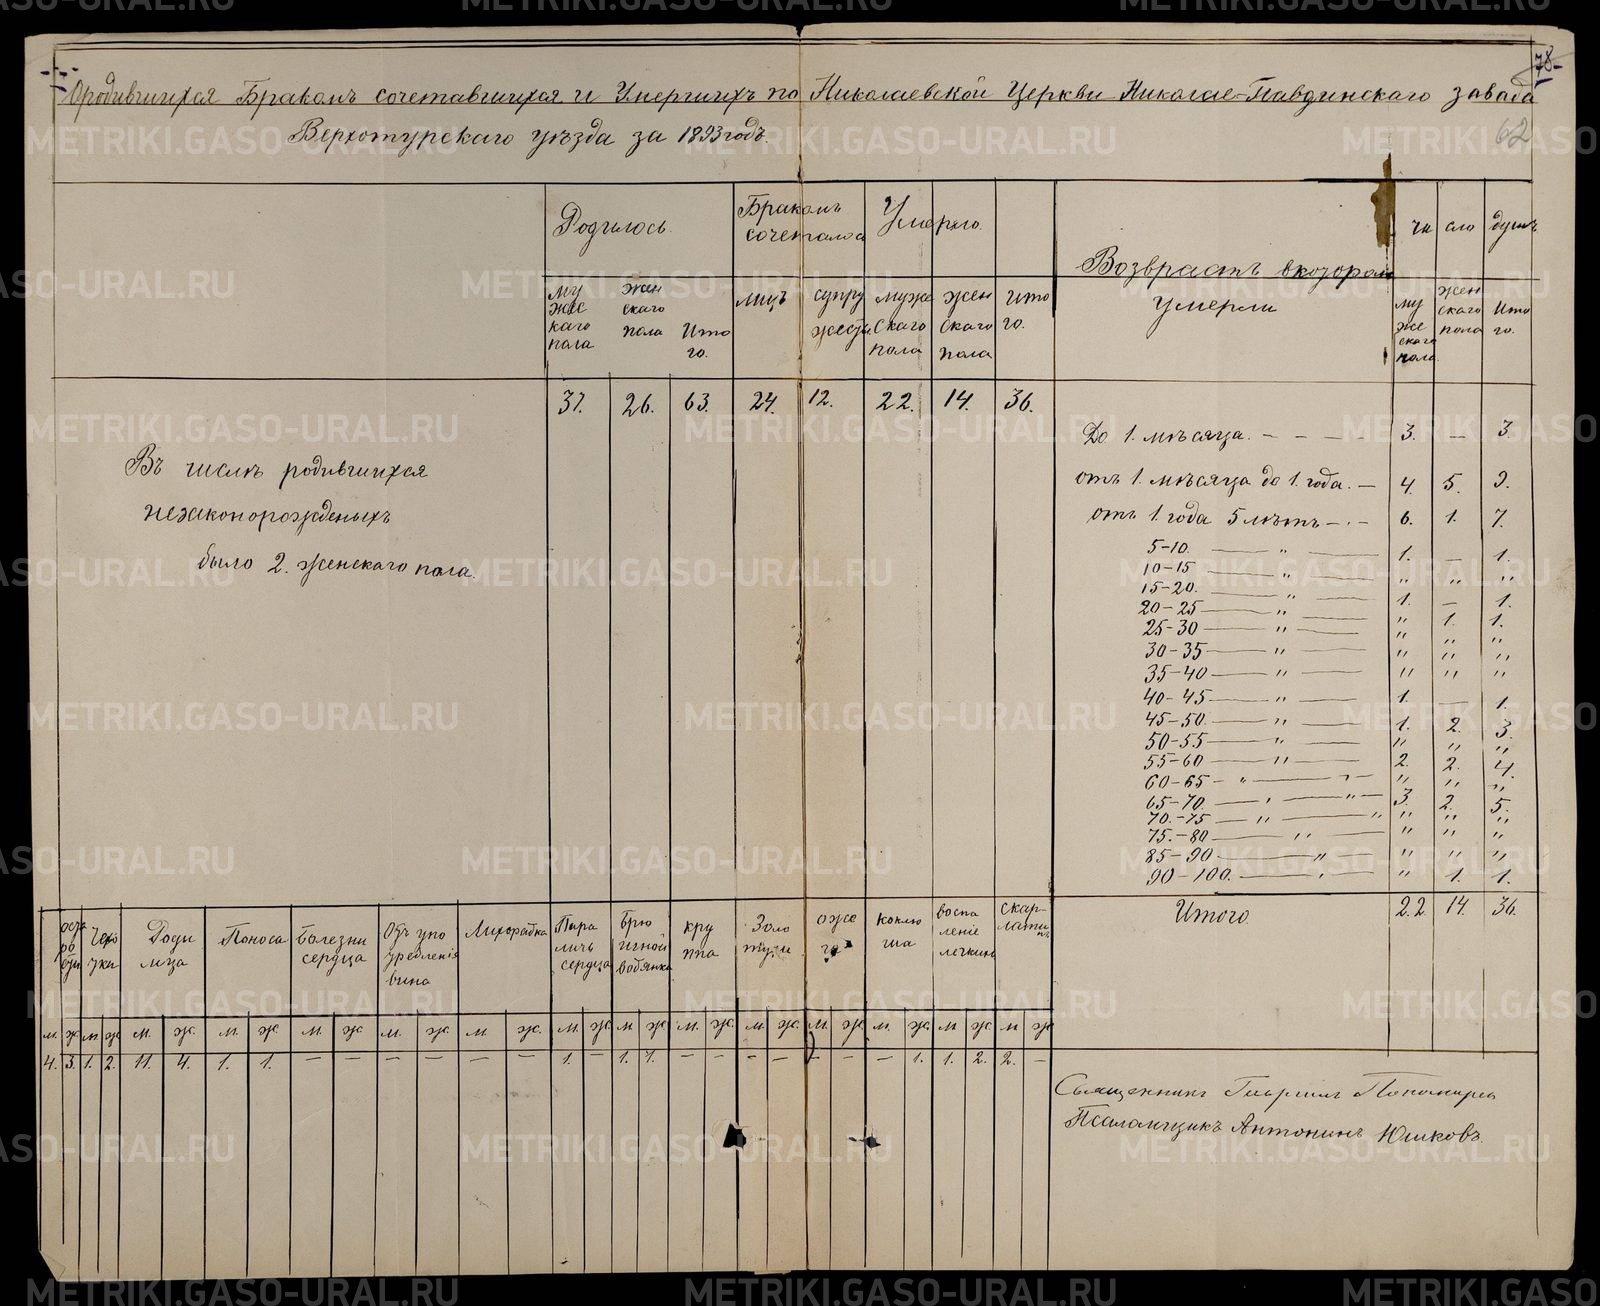 78
62
О родившихся Бракомъ сочетавшихся и Умершихъ по Николаевской Церкви Николае-Павдинскаго завода
Верхотурскаго уѣзда за 1893 годъ.
Родилось. Бракомъ сочеталось Умерло.
Возврастъ в которомъ умерли
число душъ
мужескаго пола женскаго пола Итого.
лицъ супружествъ
мужескаго пола женскаго пола Итого.
мужескаго пола женскаго пола Итого.
37. 26. 63. 24. 12. 22. 14. 36.
Въ числѣ родившихся
незаконорожденыхъ
было 2. женскаго пола.
До 1. мѣсяца. - - - - 3. — 3.
отъ 1. мѣсяца до 1. года. — 4. 5. 9.
отъ 1. года 5 лѣтъ — . — 6. 1. 7.
5-10. — " — 1. — 1.
10-15 — " — " " "
15-20. — " — 1. — 1.
20-25 — " — " 1. 1.
25-30 — " — " " "
30-35 — " — " " "
35-40 — " — " " "
40-45 — " — 1. — 1.
45-50. — " — 1. 2. 3.
50-55 — " — " " "
55-60 — " — 2. 2. 4.
60-65 - " — " — " " "
65-70. — " — " — 3. 2. 5.
70.-75 — " — " " " "
75.-80 — " — " " "
85-90 — " — " " "
90-100. — " — " 1. 1.
Итого 22 14. 36.
Чахотки
Родимца
Поноса
Болезни сердца
Отъ употребленія вина
Лихорадка
Параличъ сердца
Брюшной водянка
круппа
Золотухи
ожега
коклюша
воспаленіе легкихъ
скарлатинъ
м. ж. м. ж. м. ж. м. ж. м. ж. м. ж. м. ж. м. ж. м ж. м. ж. м ж. м. ж. м. ж. м ж. м ж
4. 3. 1. 2. 11. 4. 1. 1. — — — — — — 1. — 1. 1. — — — — — — — 1. 1. 2. 2. —
Священникъ Гавриилъ Пономарев
Псаломщикъ Антонинъ Юшковъ.